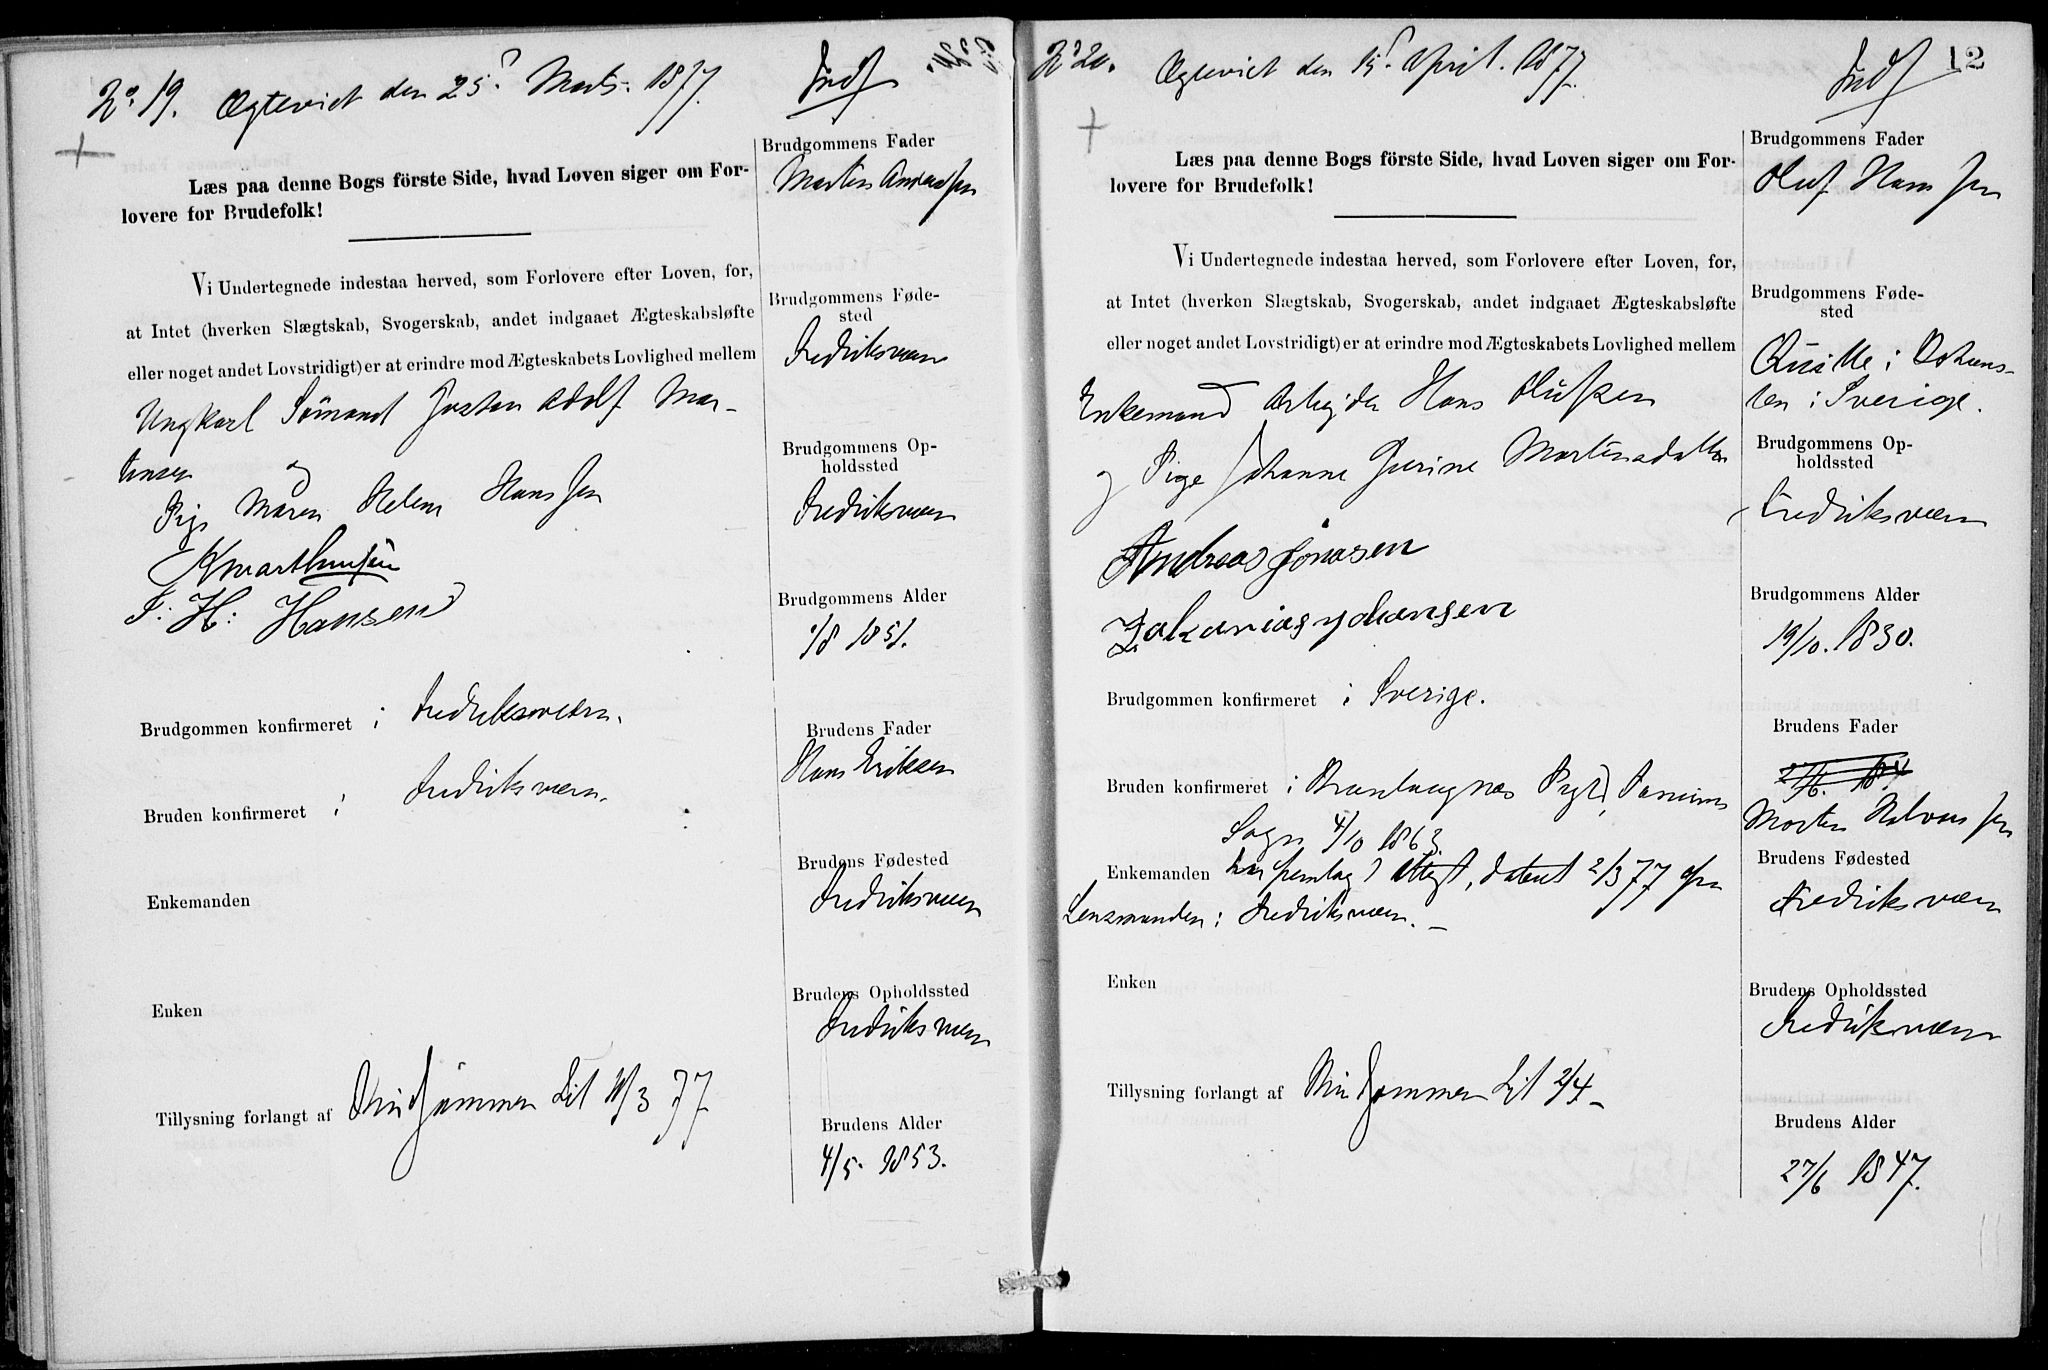 No. 19. Ægteviet den 25d Marts 1877. Indf
+
Læs paa denne Bogs förste Side, hvad Loven siger om For-
lovere for Brudefolk!
Vi Undertegnede indestaa herved, som Forlovere efter Loven, for,
at Intet (hverken Slægtskab, Svogerskab, andet indgaaet Ægteskabsløfte
eller noget andet Lovstridigt) er at erindre mod Ægteskabets Lovlighed mellem
Ungkarl Sömand Adolf Mar-
tinsen og
Pige Maren Helene Hanssen
F: H: Hansen
Brudgommen konfirmeret i Fredriksværn.
Bruden konfirmeret i Fredriksværn.
Enkemanden
Enken
Tillysning forlangt af Brudgommen 3 77
Brudgommens Fader
Morten Anderssen
Brudgommens Føde-
sted
Fredriksværn
Brudgommens Op-
holdssted
Fredriksværn
Brudgommens Alder
/8 1851.
Brudens Fader
Hans Eriksen
Brudens Fødested
Fredriksværn
Brudens Opholdssted
Fredriksværn
Brudens Alder
4/5. 1853.
No 20. Ægteviet den 15d April. 1877. Indf 12
+
Læs paa denne Bogs förste Side, hvad Loven siger om For-
lovere for Brudefolk!
Vi Undertegnede indestaa herved, som Forlovere efter Loven, for,
at Intet (hverken Slægtskab, Svogerskab, andet indgaaet Ægteskabsløfte
eller noget andet Lovstridigt) er at erindre mod Ægteskabets Lovlighed mellem
Enkemand Arbejder Hans Olufsen
og Pige Johanne Martinsdatter
Andreas Jonasen
Zakarias Johansen
Brudgommen konfirmeret i Sverige.
Bruden konfirmeret i Prgld,
Sogn 4/10 1863
Enkemanden har fremlagt Attest, dateret 2/3 77 fra
Lensmanden i Fredriksværn. –
Enken
Tillysning forlangt af Brudgommen 2/4 –
Brudgommens Fader
Oluf Hanssen
Brudgommens Føde-
sted
i
len i Sverige.
Brudgommens Op-
holdssted
Fredriksværn
Brudgommens Alder
19/10. 1830.
Brudens Fader
Morten Halvorssen
Brudens Fødested
Fredriksværn
Brudens Opholdssted
Fredriksværn
Brudens Alder
27/6 1847.